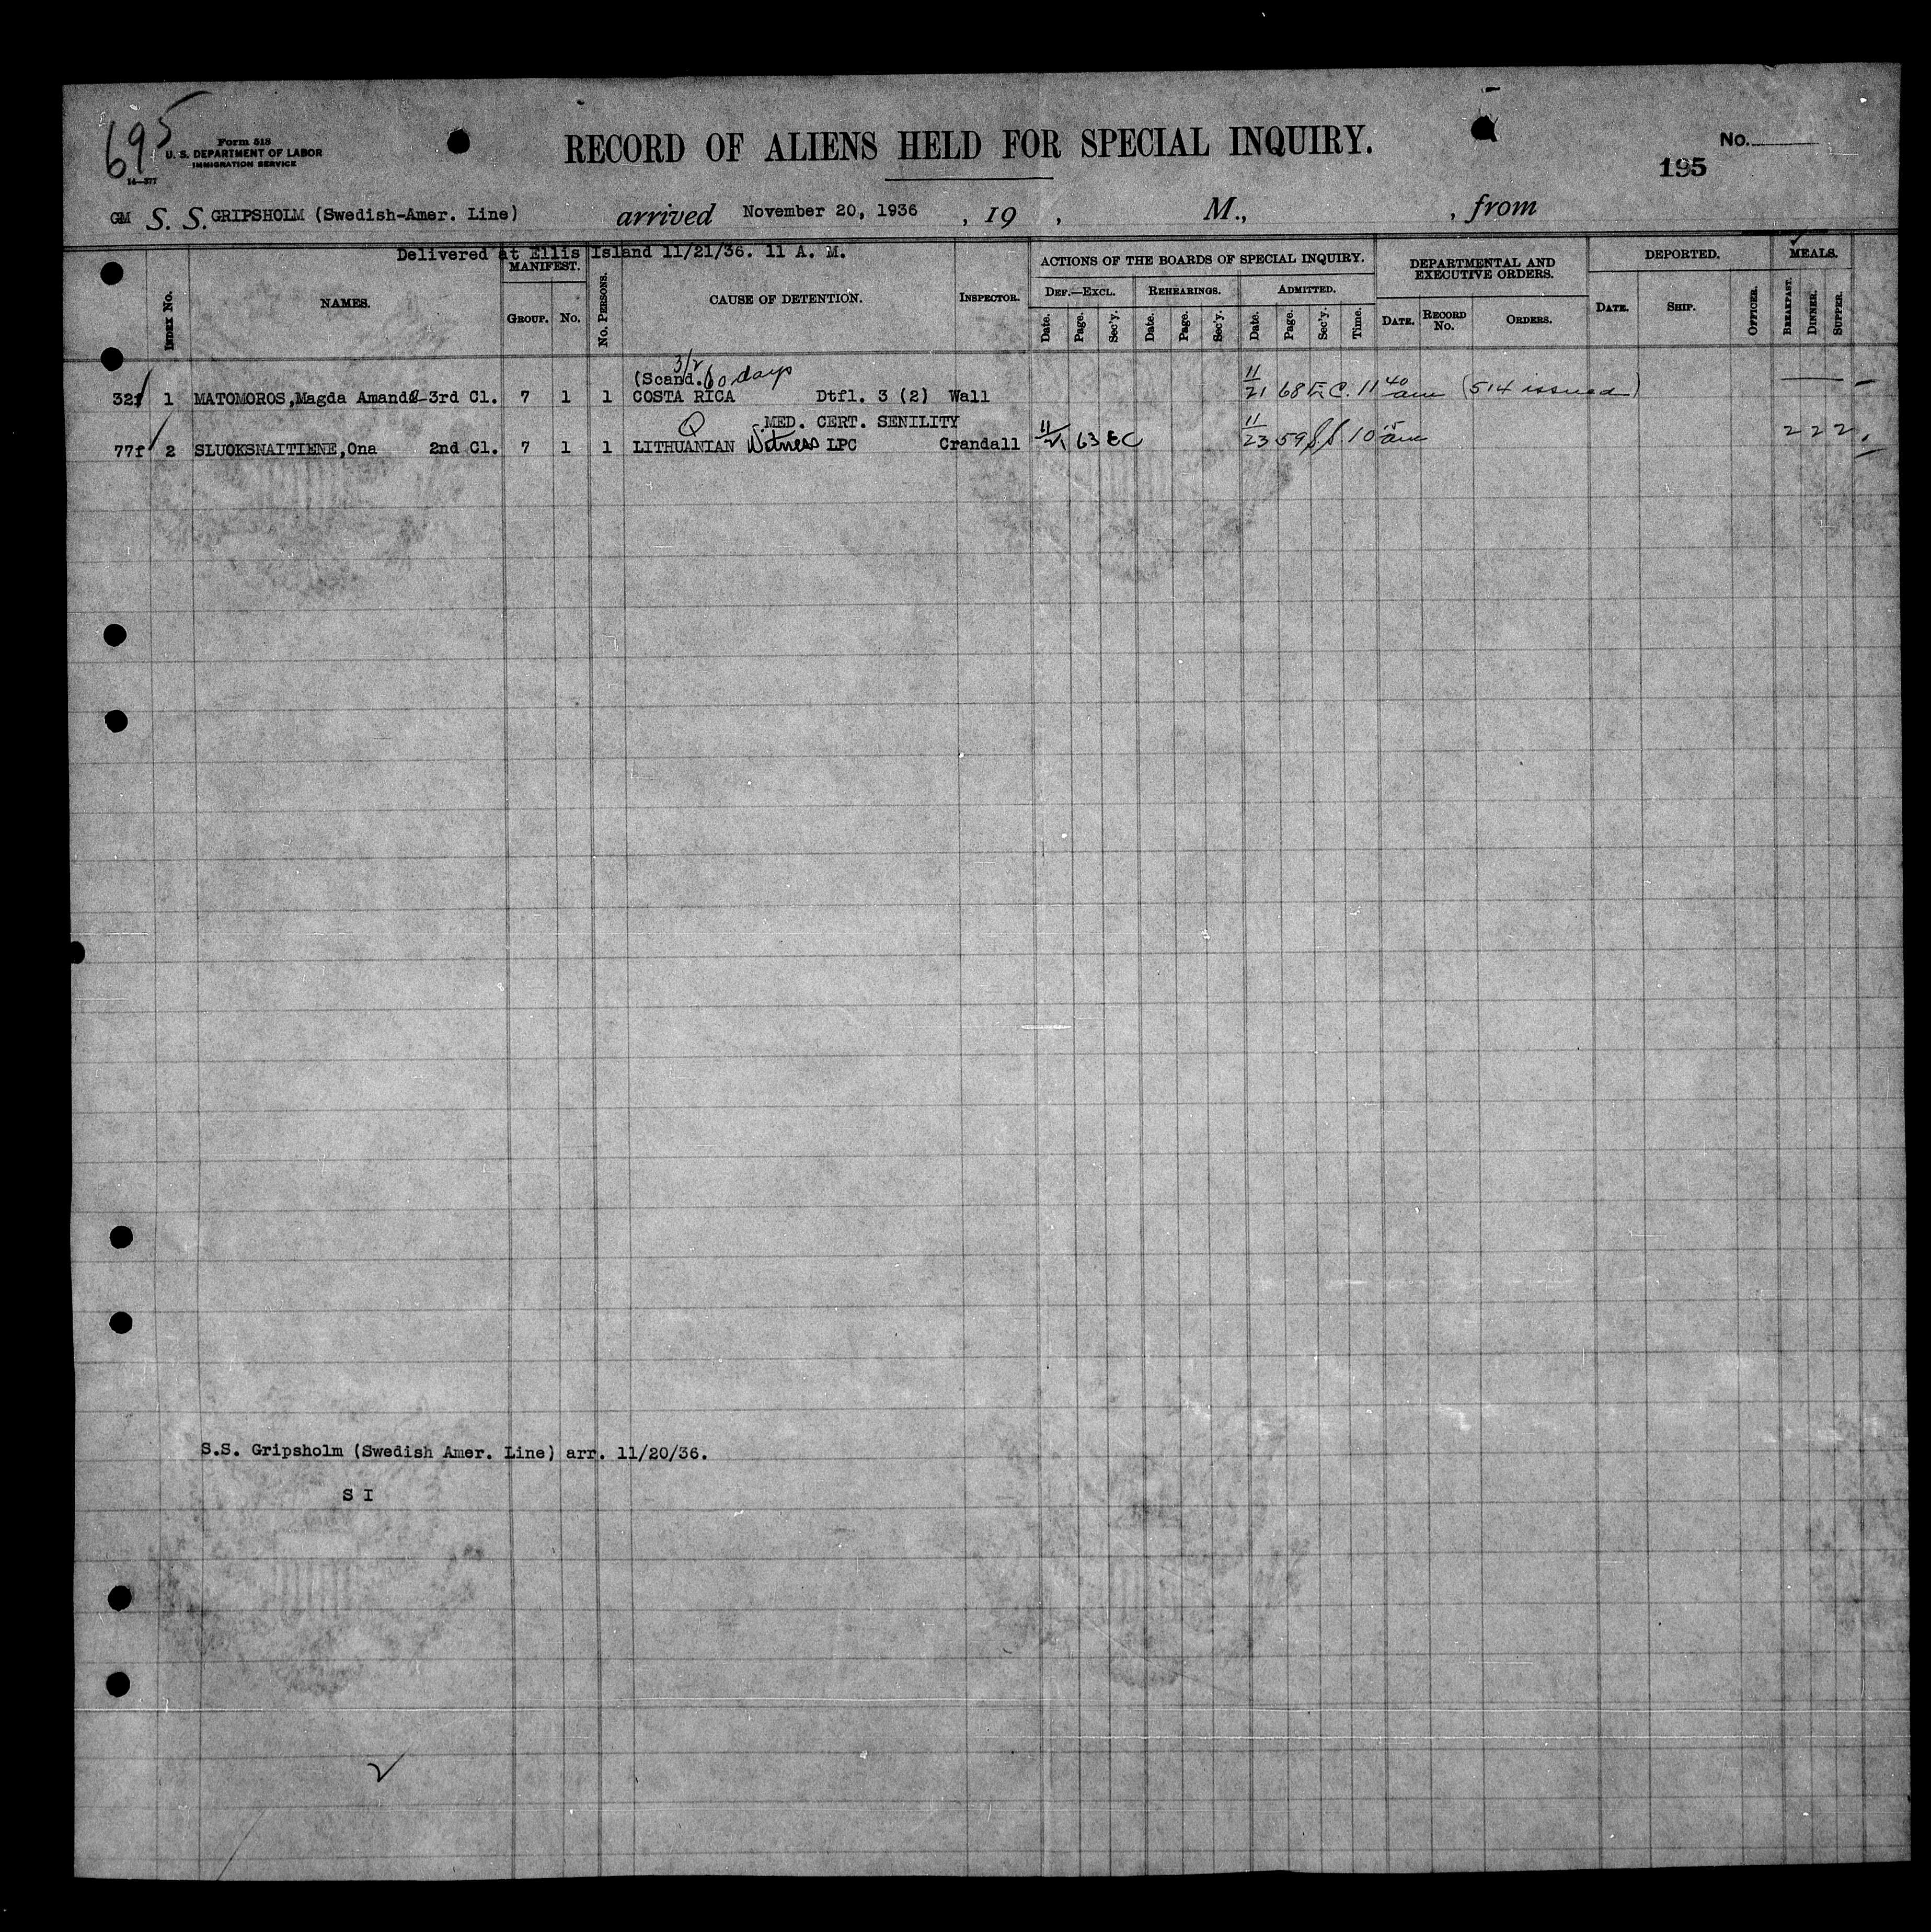 695
Form 518
U. S. DEPARTMENT OF LABOR
IMMIGRATION SERVICE
14—377
RECORD OF ALIENS HELD FOR SPECIAL INQUIRY.
No.
195
GM S. S. GRIPSHOLM (Swedish-Amer. Line) arrived November 20, 1936 , 19 , M., , from
Delivered at Ellis Island 11/21/36. 11 A. M.
INDEX No. NAMES. MANIFEST. GROUP. No. No. PERSONS. CAUSE OF DETENTION. INSPECTOR. ACTIONS OF THE BOARDS OF SPECIAL INQUIRY. DEPARTMENTAL AND EXECUTIVE ORDERS. DEPORTED. MEALS.
DEF.—EXCL. REHEARINGS. ADMITTED.
Date. Page. Sec'y. Date. Page. Sec'y. Date. Page. Sec'y. Time. DATE. RECORD No. ORDERS. DATE. SHIP. OFFICER. BREAKFAST. DINNER. SUPPER.
3/2
(Scand. 60 days
32f 1 MATOMOROS,Magda Amanda-3rd Cl. 7 1 1 COSTA RICA Dtfl. 3 (2) Wall 11/21 68 E C. 11 40 am (514 issued)
Q MED. CERT. SENILITY
77f 2 SLUOKSNAITIENE,Ona 2nd Cl. 7 1 1 LITHUANIAN Witness LPC Crandall 11/21 63 EC 11/23 59 10 am 2 2 2
S.S. Gripsholm (Swedish Amer. Line) arr. 11/20/36.
S I